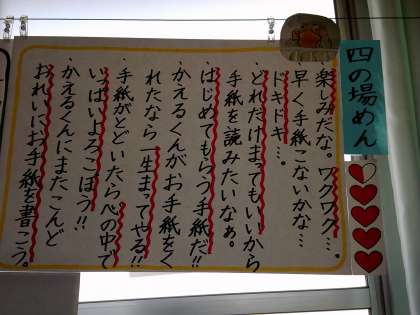 四の場めん
楽しみだな。ワクワク…。
早く手紙こないかな…
ドキドキ…。
どれだけまってもいいから
手紙を読みたいなぁ。
はじめてもらう手紙だ!!
かえるくんがお手紙をく
れたなら一生まってやる!!
手紙がとどいたら心の中で
いっぱいよろこぼう!!
かえるくんにまたこんど
おれいにお手紙を書こう。